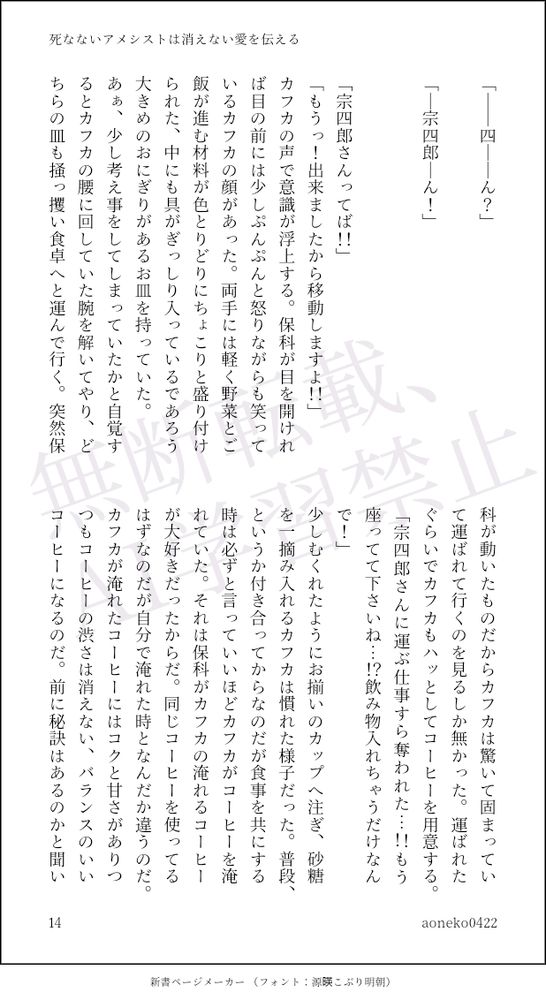 死なないアメシストは消えない愛を伝える
「――四――ん?」
「―宗四郎―ん!」
「宗四郎さんってば!!」
「もうっ!出来ましたから移動しますよ!!」
カフカの声で意識が浮上する。保科が目を開けれ
ば目の前には少しぷんぷんと怒りながらも笑って
いるカフカの顔があった。両手には軽く野菜とご
飯が進む材料が色とりどりにちょこりと盛り付け
られた、中にも具がぎっしり入っているであろう
大きめのおにぎりがあるお皿を持っていた。
あぁ、少し考え事をしてしまっていたかと自覚す
るとカフカの腰に回していた腕を解いてやり、ど
ちらの皿も掻っ攫い食卓へと運んで行く。突然保
科が動いたものだからカフカは驚いて固まってい
て運ばれて行くのを見るしか無かった。運ばれた
ぐらいでカフカもハッとしてコーヒーを用意する。
「宗四郎さんに運ぶ仕事すら奪われた…!!もう
座ってて下さいね…!?飲み物入れちゃうだけなん
で!」
少しむくれたようにお揃いのカップへ注ぎ、砂糖
を一摘み入れるカフカは慣れた様子だった。普段、
というか付き合ってからなのだが食事を共にする
時は必ずと言っていいほどカフカがコーヒーを淹
れていた。それは保科がカフカの淹れるコーヒー
が大好きだったからだ。同じコーヒーを使ってる
はずなのだが自分で淹れた時となんだか違うのだ。
カフカが淹れたコーヒーにはコクと甘さがありつ
つもコーヒーの渋さは消えない、バランスのいい
コーヒーになるのだ。前に秘訣はあるのかと聞い
無断転載、
AI学習禁止
14
aoneko0422
新書ページメーカー(フォント:源暎こぶり明朝)